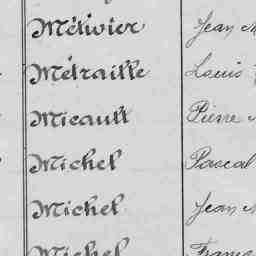 Métivier Jean
Métraille Louis
Micault Pierre
Michel Pascal
Michel Jean
Michel